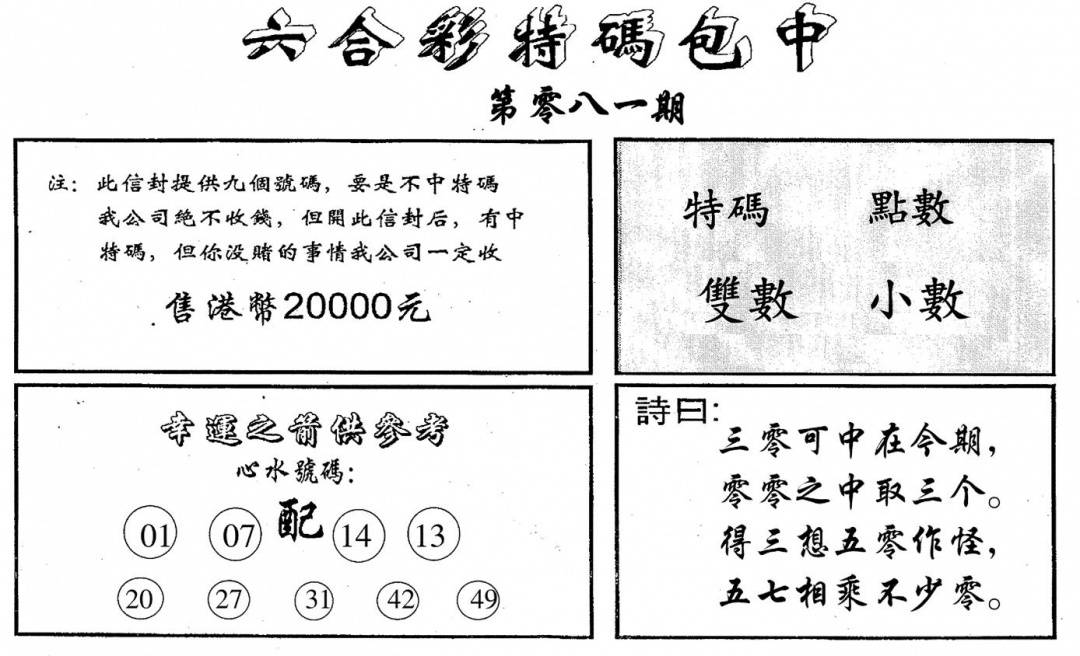 六合彩特碼包中
第零八一期
注：此信封提供九個號碼，要是不中特碼
我公司絕不收錢，但開此信封后，有中
特碼，但你没賭的事情我公司一定收
售港幣20000元
特碼 點數
雙數 小數
幸運之箭供參考
心水號碼：
01 07 配 14 13
20 27 31 42 49
詩曰：
三零可中在今期，
零零之中取三个。
得三想五零作怪，
五七相乘不少零。